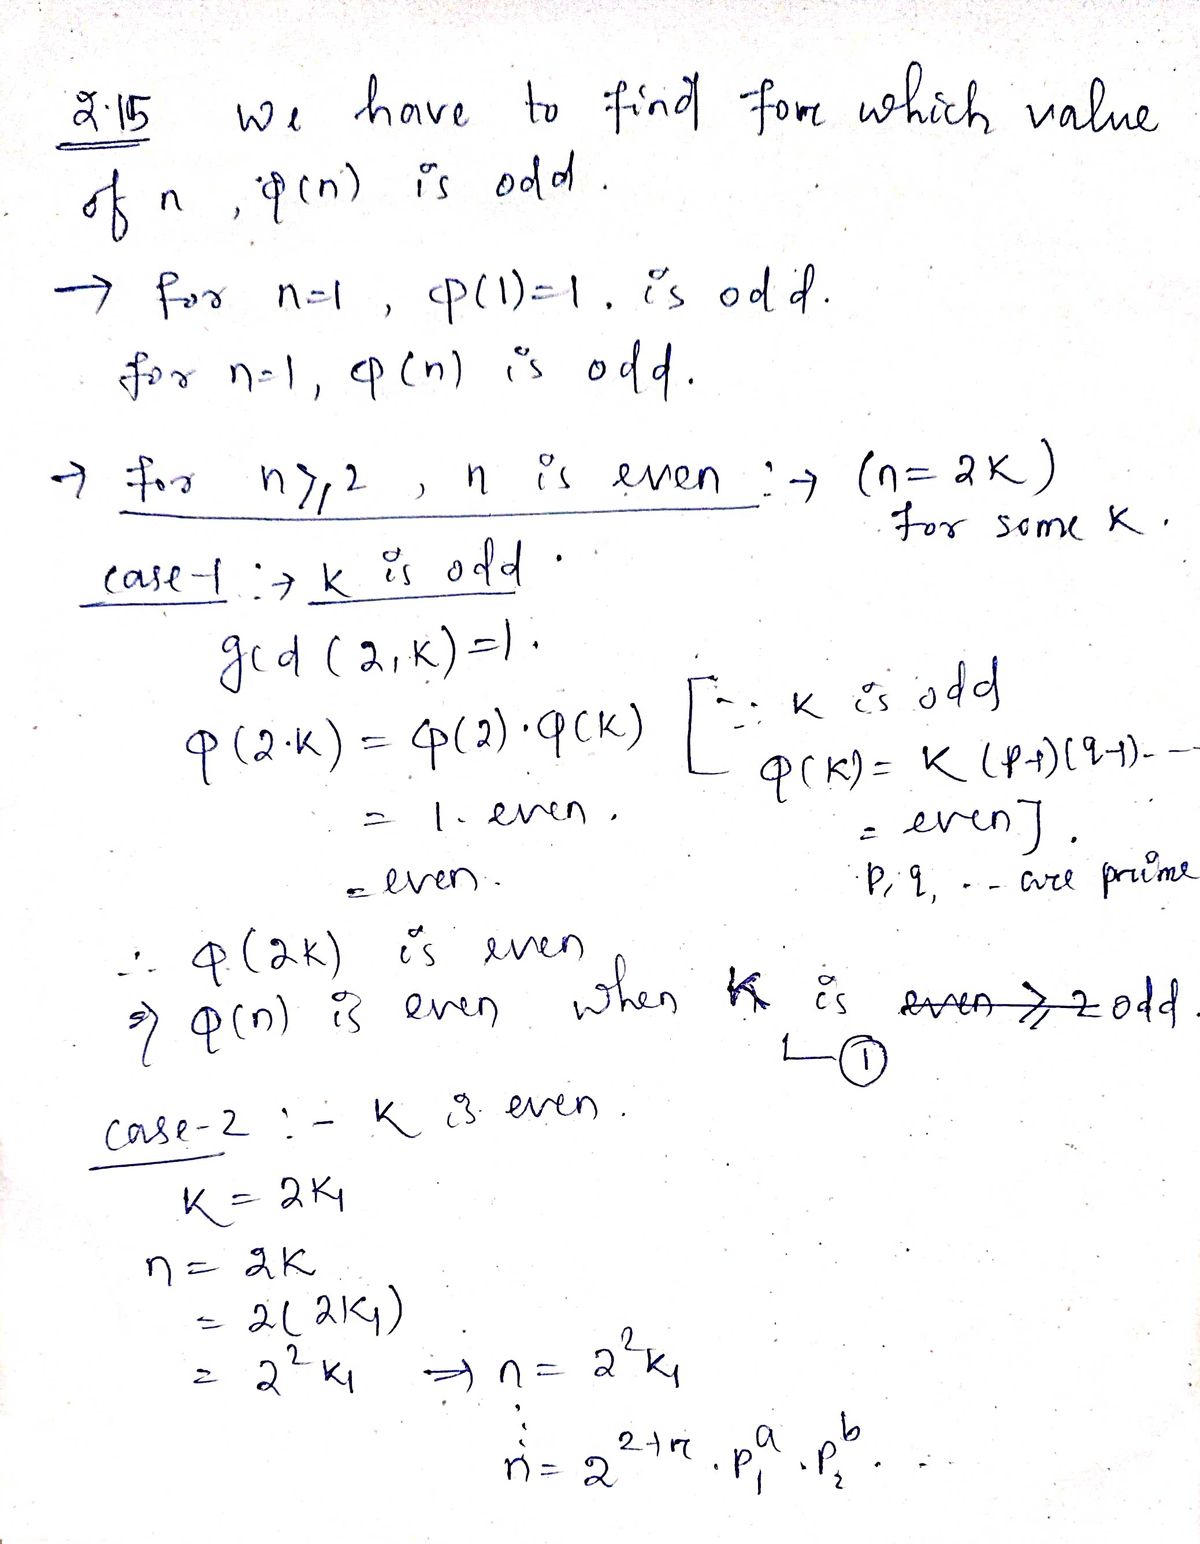 2.15 We have to find for which value
of n, φ(n) is odd.
→ for n=1, φ(1)=1. is odd.
for n=1, φ(n) is odd.
→ for n⩾2, n is even :→ (n=2K)
for some K.
case-1 :→ K is odd.
gcd(2,K)=1.
φ(2·K) = φ(2)·φ(K) [∵ K is odd
φ(K) = K (p-1)(q-1)---
= 1. even. = even].
= even. p, q, -- are prime
∴ φ(2K) is even
⇒ φ(n) is even when K is even ⩾ 2 odd.
①
case-2 :- K is even.
K = 2K₁
n = 2K
= 2(2K₁)
= 2² K₁ ⇒ n = 2² K₁
⋮
n = 2²⁺ʳ · p₁ᵃ · p₂ᵇ . ...